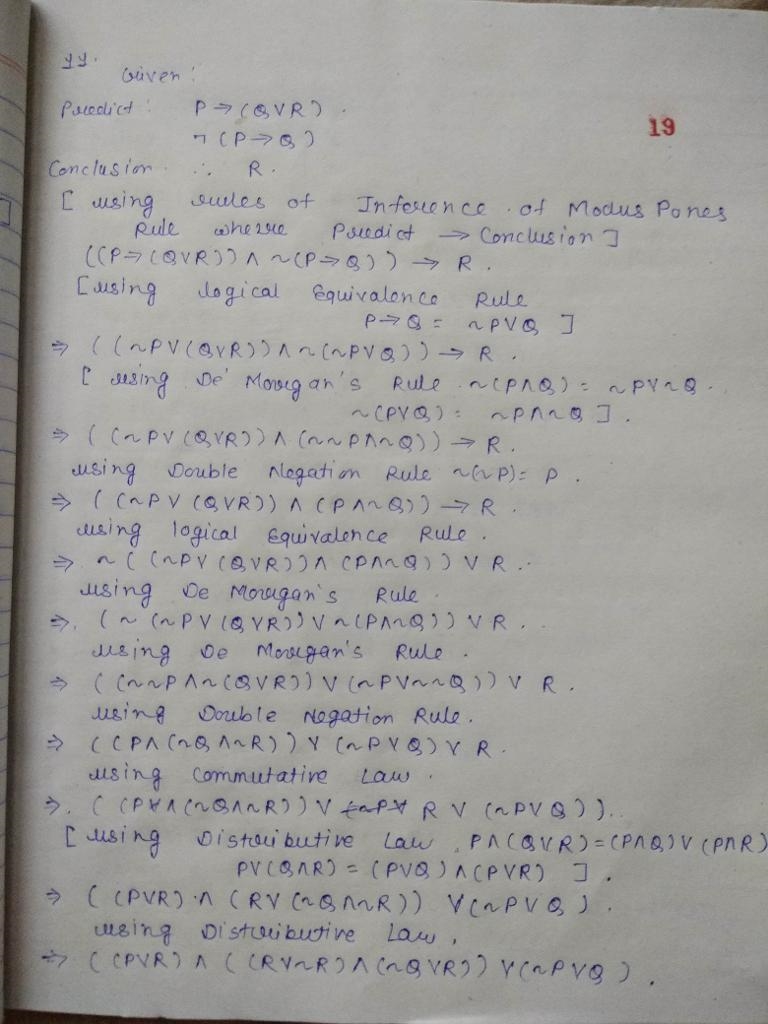 44.
Given:
Predict: P → (Q∨R).
¬ (P → Q)
19
Conclusion ∴ R.
[ using rules of Inference of Modus Pones
Rule where Predict → Conclusion ]
((P → (Q∨R)) ∧ ~(P → Q)) → R.
[using logical Equivalence Rule
P → Q = ~P∨Q ]
⇒ ((~P∨(Q∨R)) ∧ ~(~P∨Q)) → R.
[ using De' Morgan's Rule ~(P∧Q) = ~P∨~Q.
~(P∨Q) = ~P∧~Q ].
⇒ ((~P∨(Q∨R)) ∧ (~~P∧~Q)) → R.
using Double Negation Rule ~(~P) = P.
⇒ ((~P∨(Q∨R)) ∧ (P∧~Q)) → R.
using logical Equivalence Rule.
⇒. ~((~P∨(Q∨R)) ∧ (P∧~Q)) ∨ R.
using De Morgan's Rule.
⇒. (~(~P∨(Q∨R)) ∨ ~(P∧~Q)) ∨ R.
using De Morgan's Rule.
⇒ ((~~P∧~(Q∨R)) ∨ (~P∨~~Q)) ∨ R.
using Double Negation Rule.
⇒ ((P∧(~Q∧~R)) ∨ (~P∨Q) ∨ R.
using Commutative Law.
⇒. ((P∧(~Q∧~R)) ∨ R ∨ (~P∨Q)).
[using Distributive Law, P∧(Q∨R) = (P∧Q)∨(P∧R)
P∨(Q∧R) = (P∨Q)∧(P∨R) ].
⇒ ((P∨R) ∧ (R∨(~Q∧~R)) ∨ (~P∨Q).
using Distributive Law,
⇒ ((P∨R) ∧ ((R∨~R)∧(~Q∨R)) ∨ (~P∨Q).